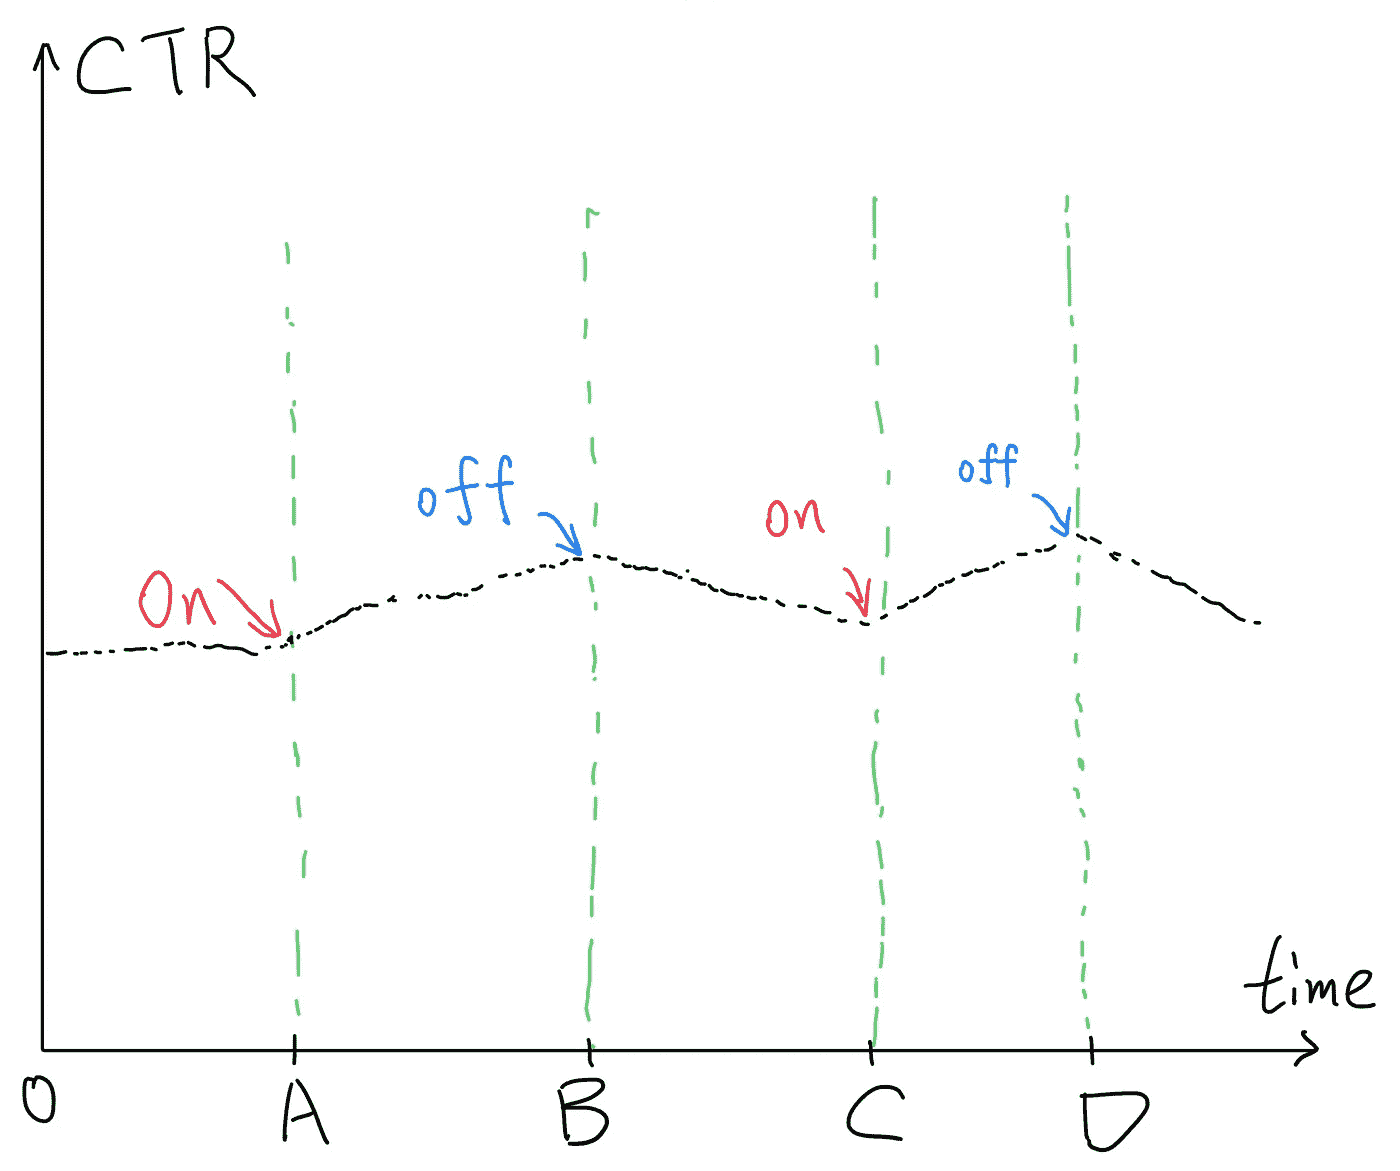 CTR
off
off
on
On
time
0
A
B
C
D